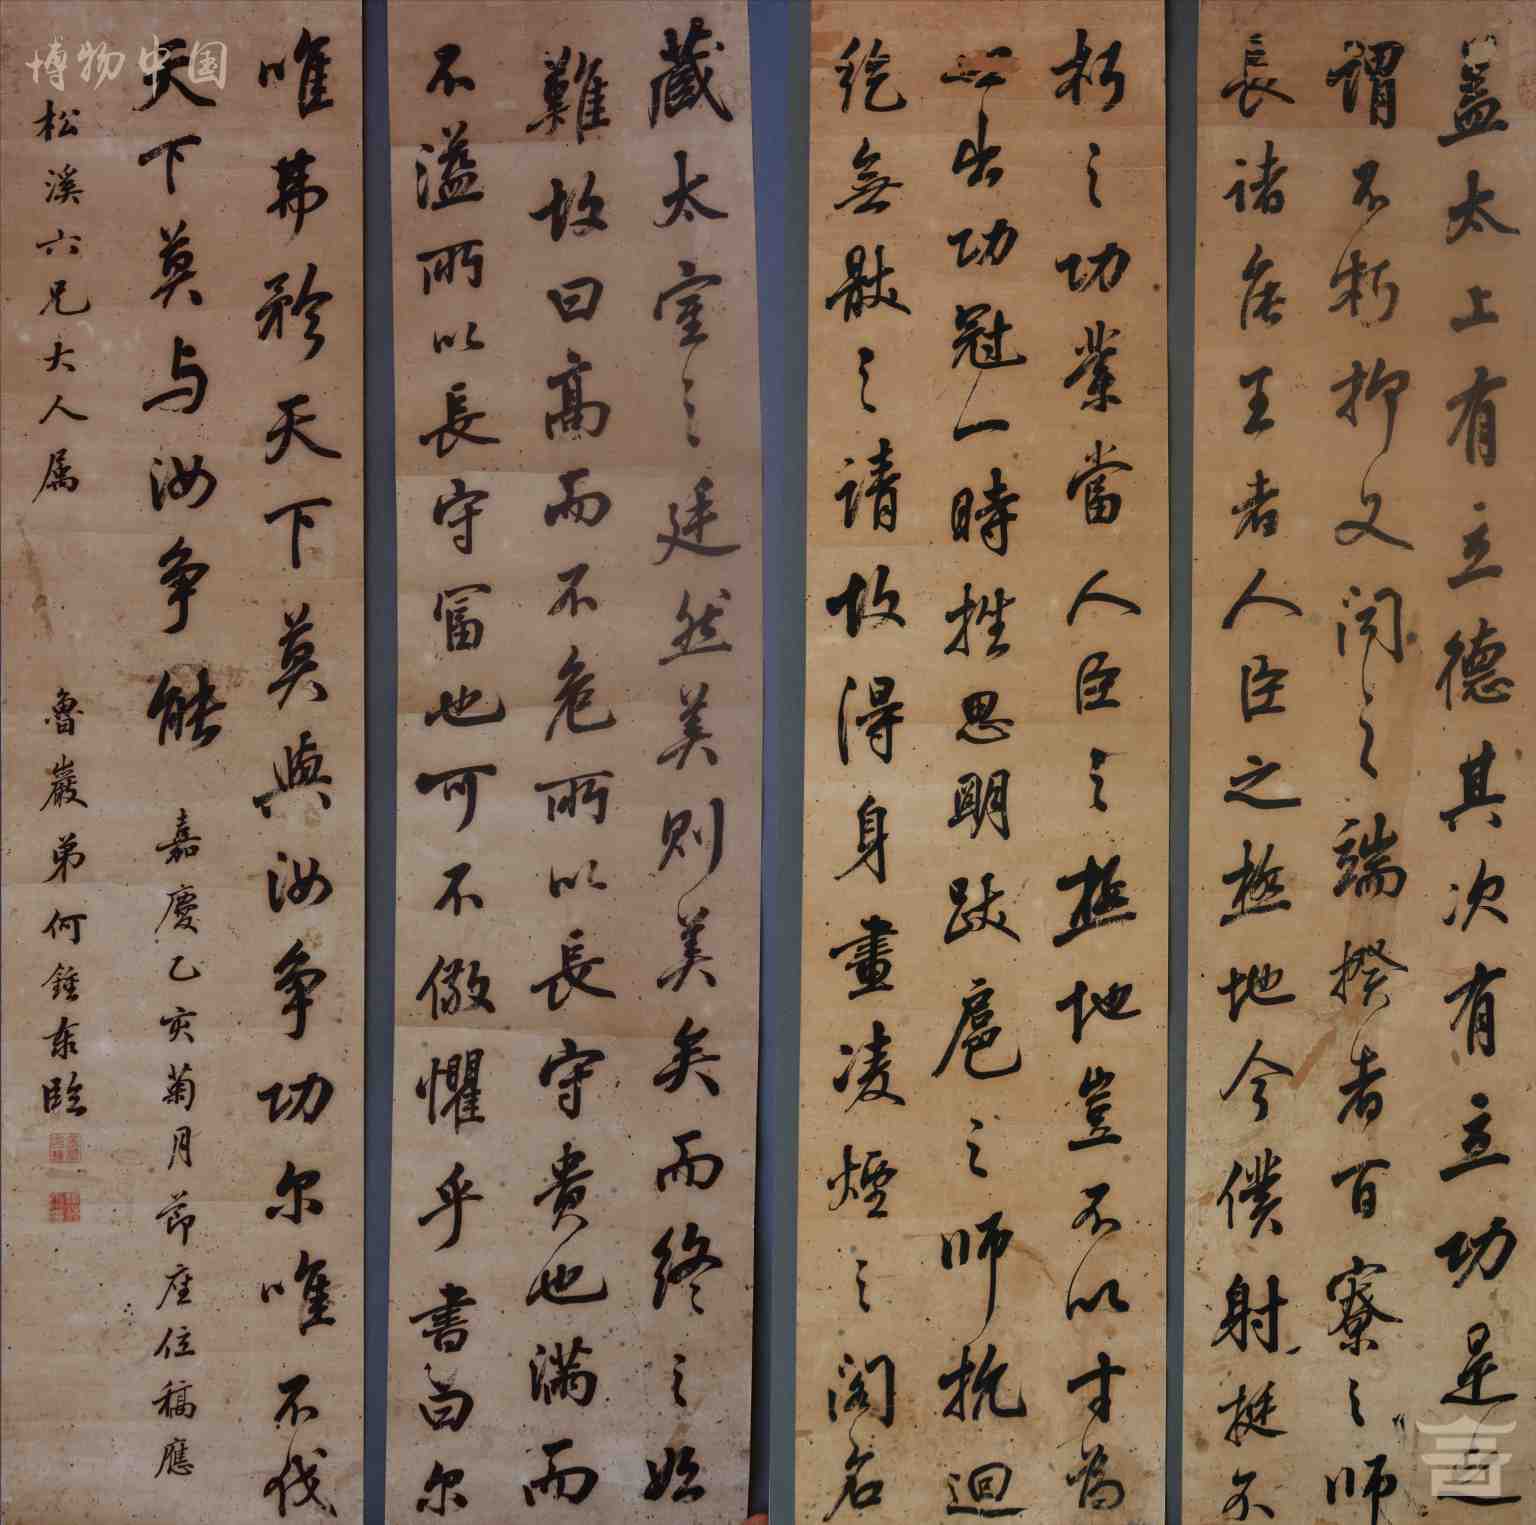 蓋太上有立德其次有立功是之
謂不朽抑又聞之端揆者百寮之師
長諸侯王者人臣之極地今僕射挺不
朽之功業當人臣之極地豈不以才為
世出功冠一時挫思明跋扈之師抗迴
紇無厭之請故得身畫凌煙之閣名
藏太室之廷然美則美矣而終之始
難故曰高而不危所以長守貴也滿而
不溢所以長守富也可不儆懼乎書曰尔
唯弗矜天下莫與汝争功尔唯不伐
天下莫与汝争能
嘉慶乙亥菊月節座位稿應
松溪六兄大人属
魯巖弟何錘泰臨
博物中国